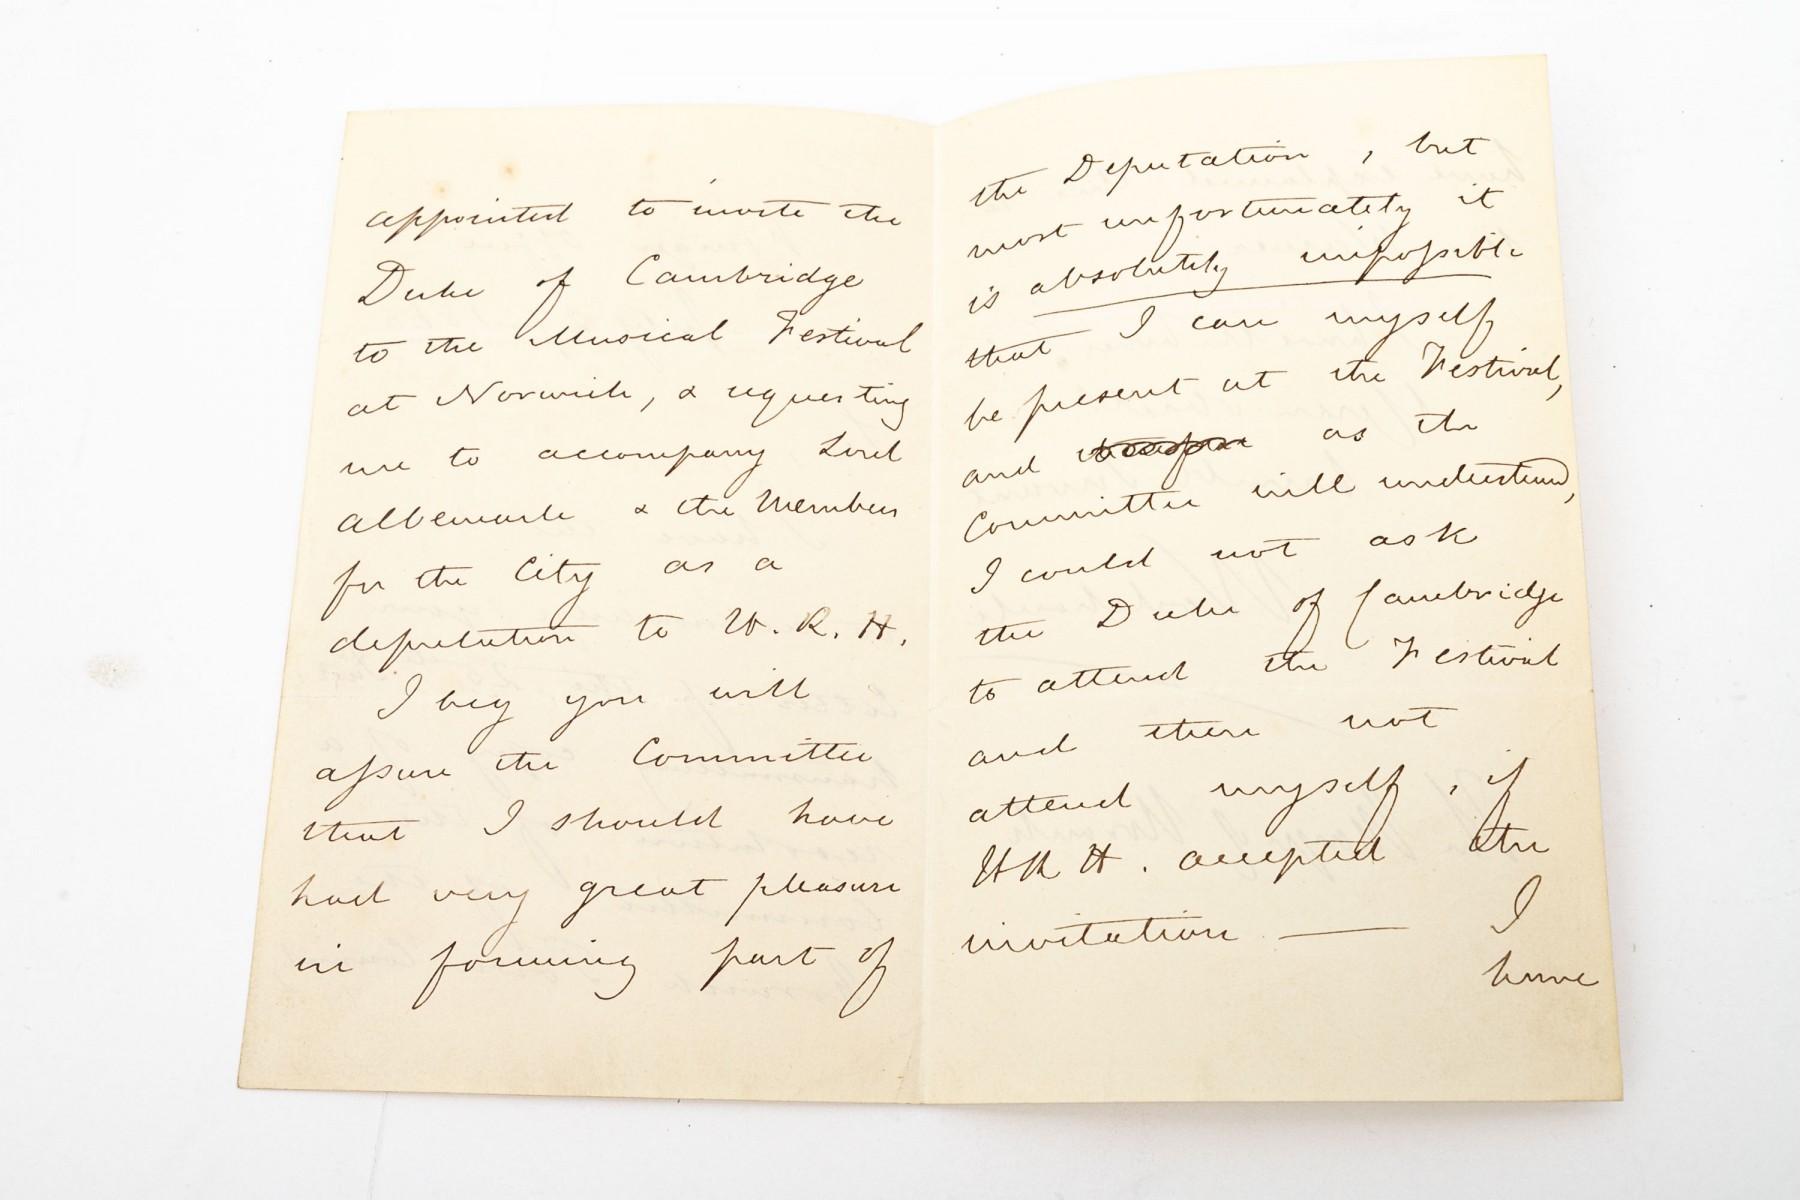 appointed to invite the
Duke of Cambridge
to the Musical Festival
at Norwich, & requesting
me to accompany Lord
Albemarle & the Members
for the City as a
deputation to H. R. H.
I beg you will
assure the Committee
that I should have
had very great pleasure
in forming part of
the Deputation, but
most unfortunately it
is absolutely impossible
that I can myself
be present at the Festival,
and as the
Committee will understand,
I could not ask
the Duke of Cambridge
to attend the Festival
and then not
attend myself, if
HRH. accepted the
invitation — I
have